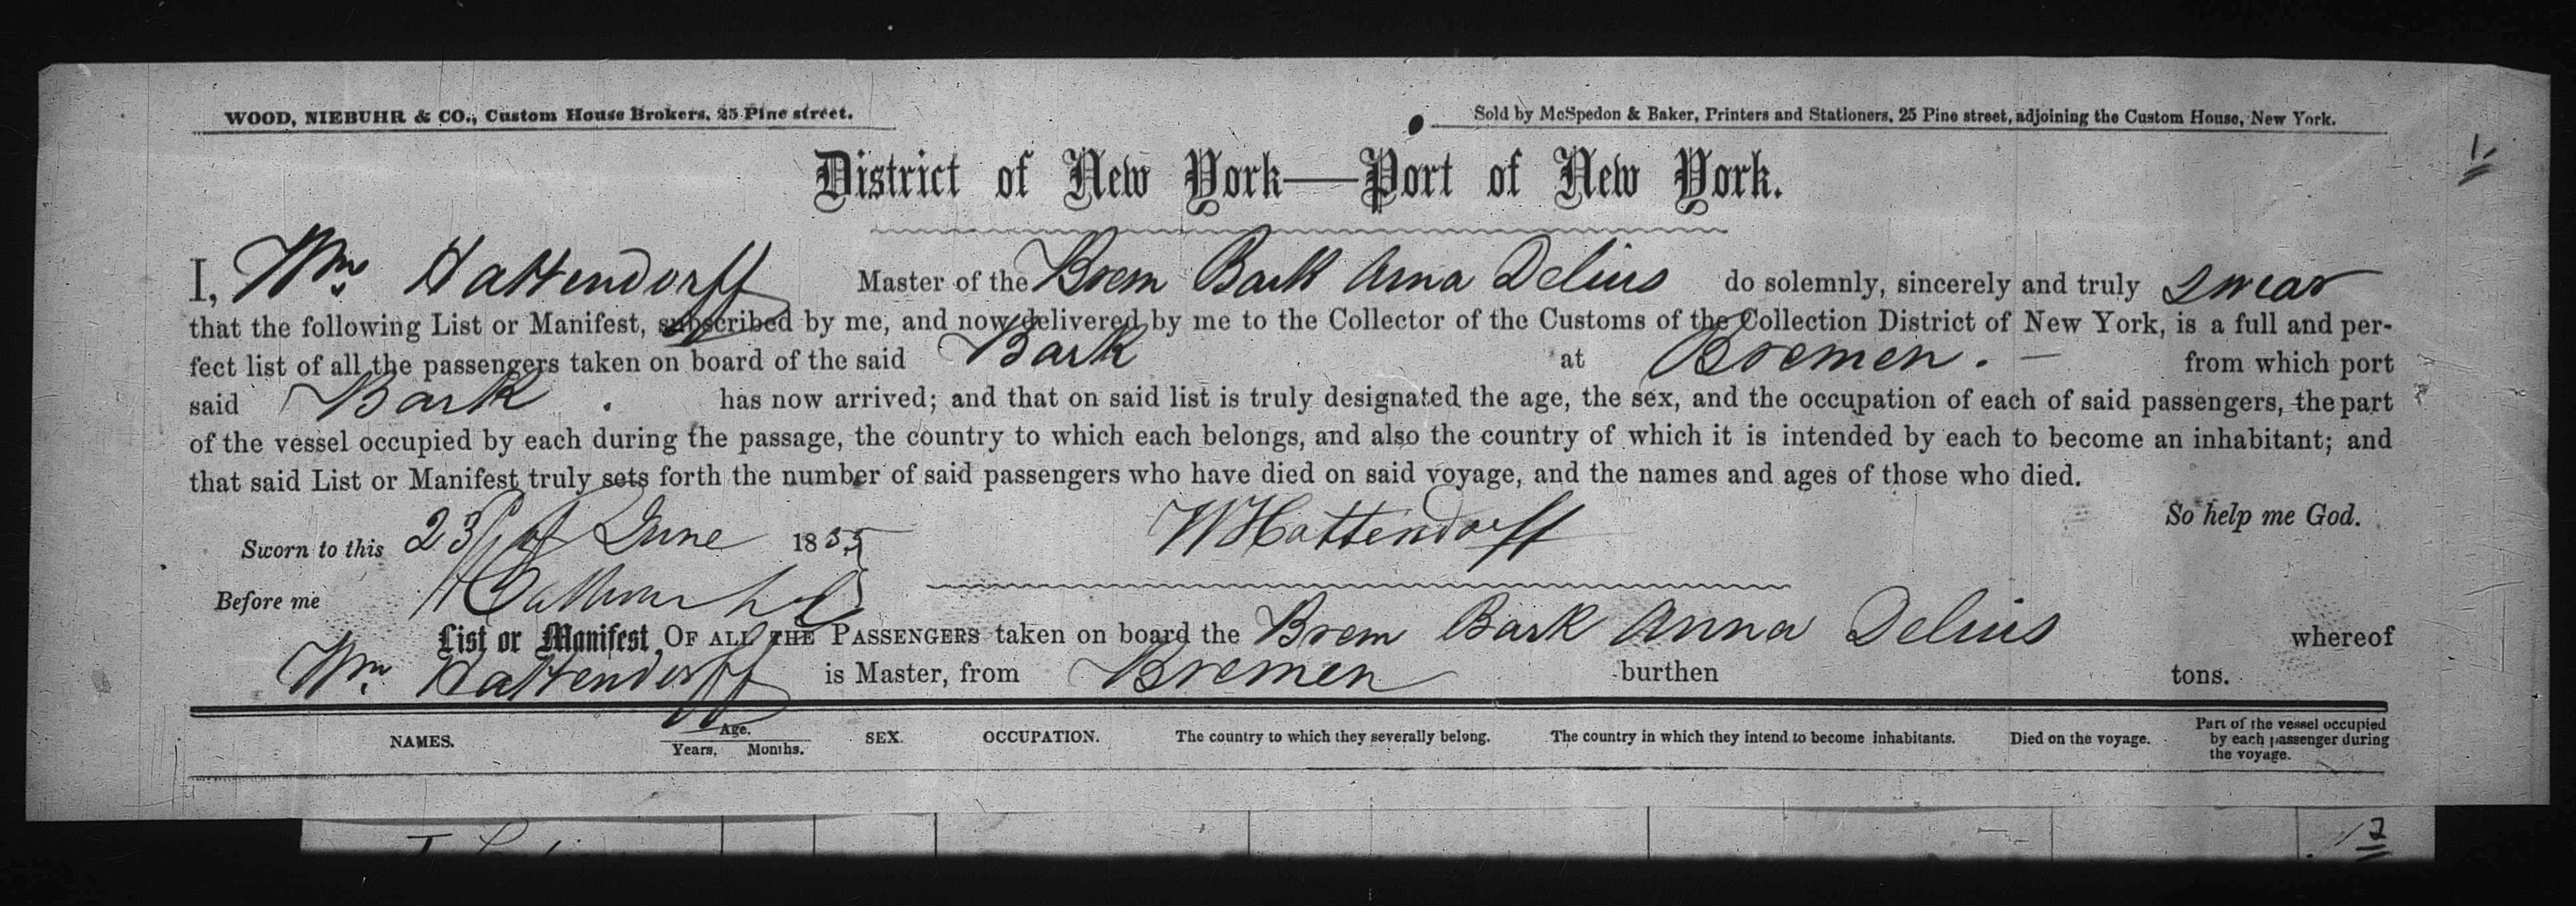 WOOD, NIEBUHR & CO., Custom House Brokers, 25 Pine street.
Sold by McSpedon & Baker, Printers and Stationers, 25 Pine street, adjoining the Custom House, New York.
1.
District of New York—Port of New York.
I, Wm. Hattendorff Master of the Brem Bark Anna Delius do solemnly, sincerely and truly swear
that the following List or Manifest, subscribed by me, and now delivered by me to the Collector of the Customs of the Collection District of New York, is a full and per-
fect list of all the passengers taken on board of the said Bark at Bremen. — from which port
said Bark. has now arrived; and that on said list is truly designated the age, the sex, and the occupation of each of said passengers, the part
of the vessel occupied by each during the passage, the country to which each belongs, and also the country of which it is intended by each to become an inhabitant; and
that said List or Manifest truly sets forth the number of said passengers who have died on said voyage, and the names and ages of those who died.
So help me God.
Sworn to this 23 of June 1855
WHattendorff
Before me
List or Manifest OF ALL THE PASSENGERS taken on board the Brem Bark Anna Delius whereof
Wm. Hattendorff is Master, from Bremen burthen tons.
NAMES. Age. Years, Months. SEX. OCCUPATION. The country to which they severally belong. The country in which they intend to become inhabitants. Died on the voyage. Part of the vessel occupied by each passenger during the voyage.
12